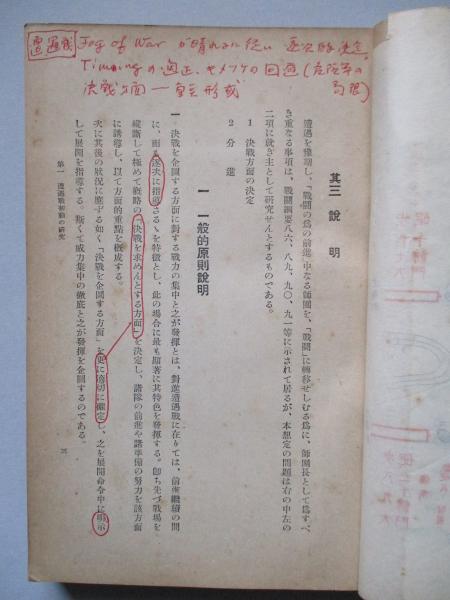 遭遇戦
Fog of War が晴れるに従い 逐次的決意。
Timingの適正、の回避(危険率の局限)
決戦方面 ― 重点形成
其三 說明
遭遇を豫期し、「戰鬪の爲の前進」中なる師團を、「戰鬪」に轉移せしむる爲に、師團長として爲すべ
き重なる事項は、戰鬪綱要八六、八九、九〇、九一等に示されて居るが、本想定の問題は右の中左の
二項に就き主として硏究せんとするものである。
1 決戰方面の決定
2 分進
一 一般的原則說明
一 決戰を企圖する方面に對する戰力の集中と之が發揮とは、對進遭遇戰に在りては、前進繼續の間
に、而も逐次に指導さるゝを特徵とし、此の場合に最も顯著に其特色を發揮する。卽ち先づ戰場を
縱斷して極めて戰略的「決戰を求めんとする方面」を決定し、諸隊の前進や諸準備の努力を該方面
に誘導し、以て方面的重點を構成する。
次に其後の狀況に應ずる如く「決戰を企圖する方面」を更に適切に確定し、之を展開命令中に明示
して展開を指導する。斯くて威力集中の徹底と之が發揮を企圖するのである。
第一 遭遇戰初動の硏究